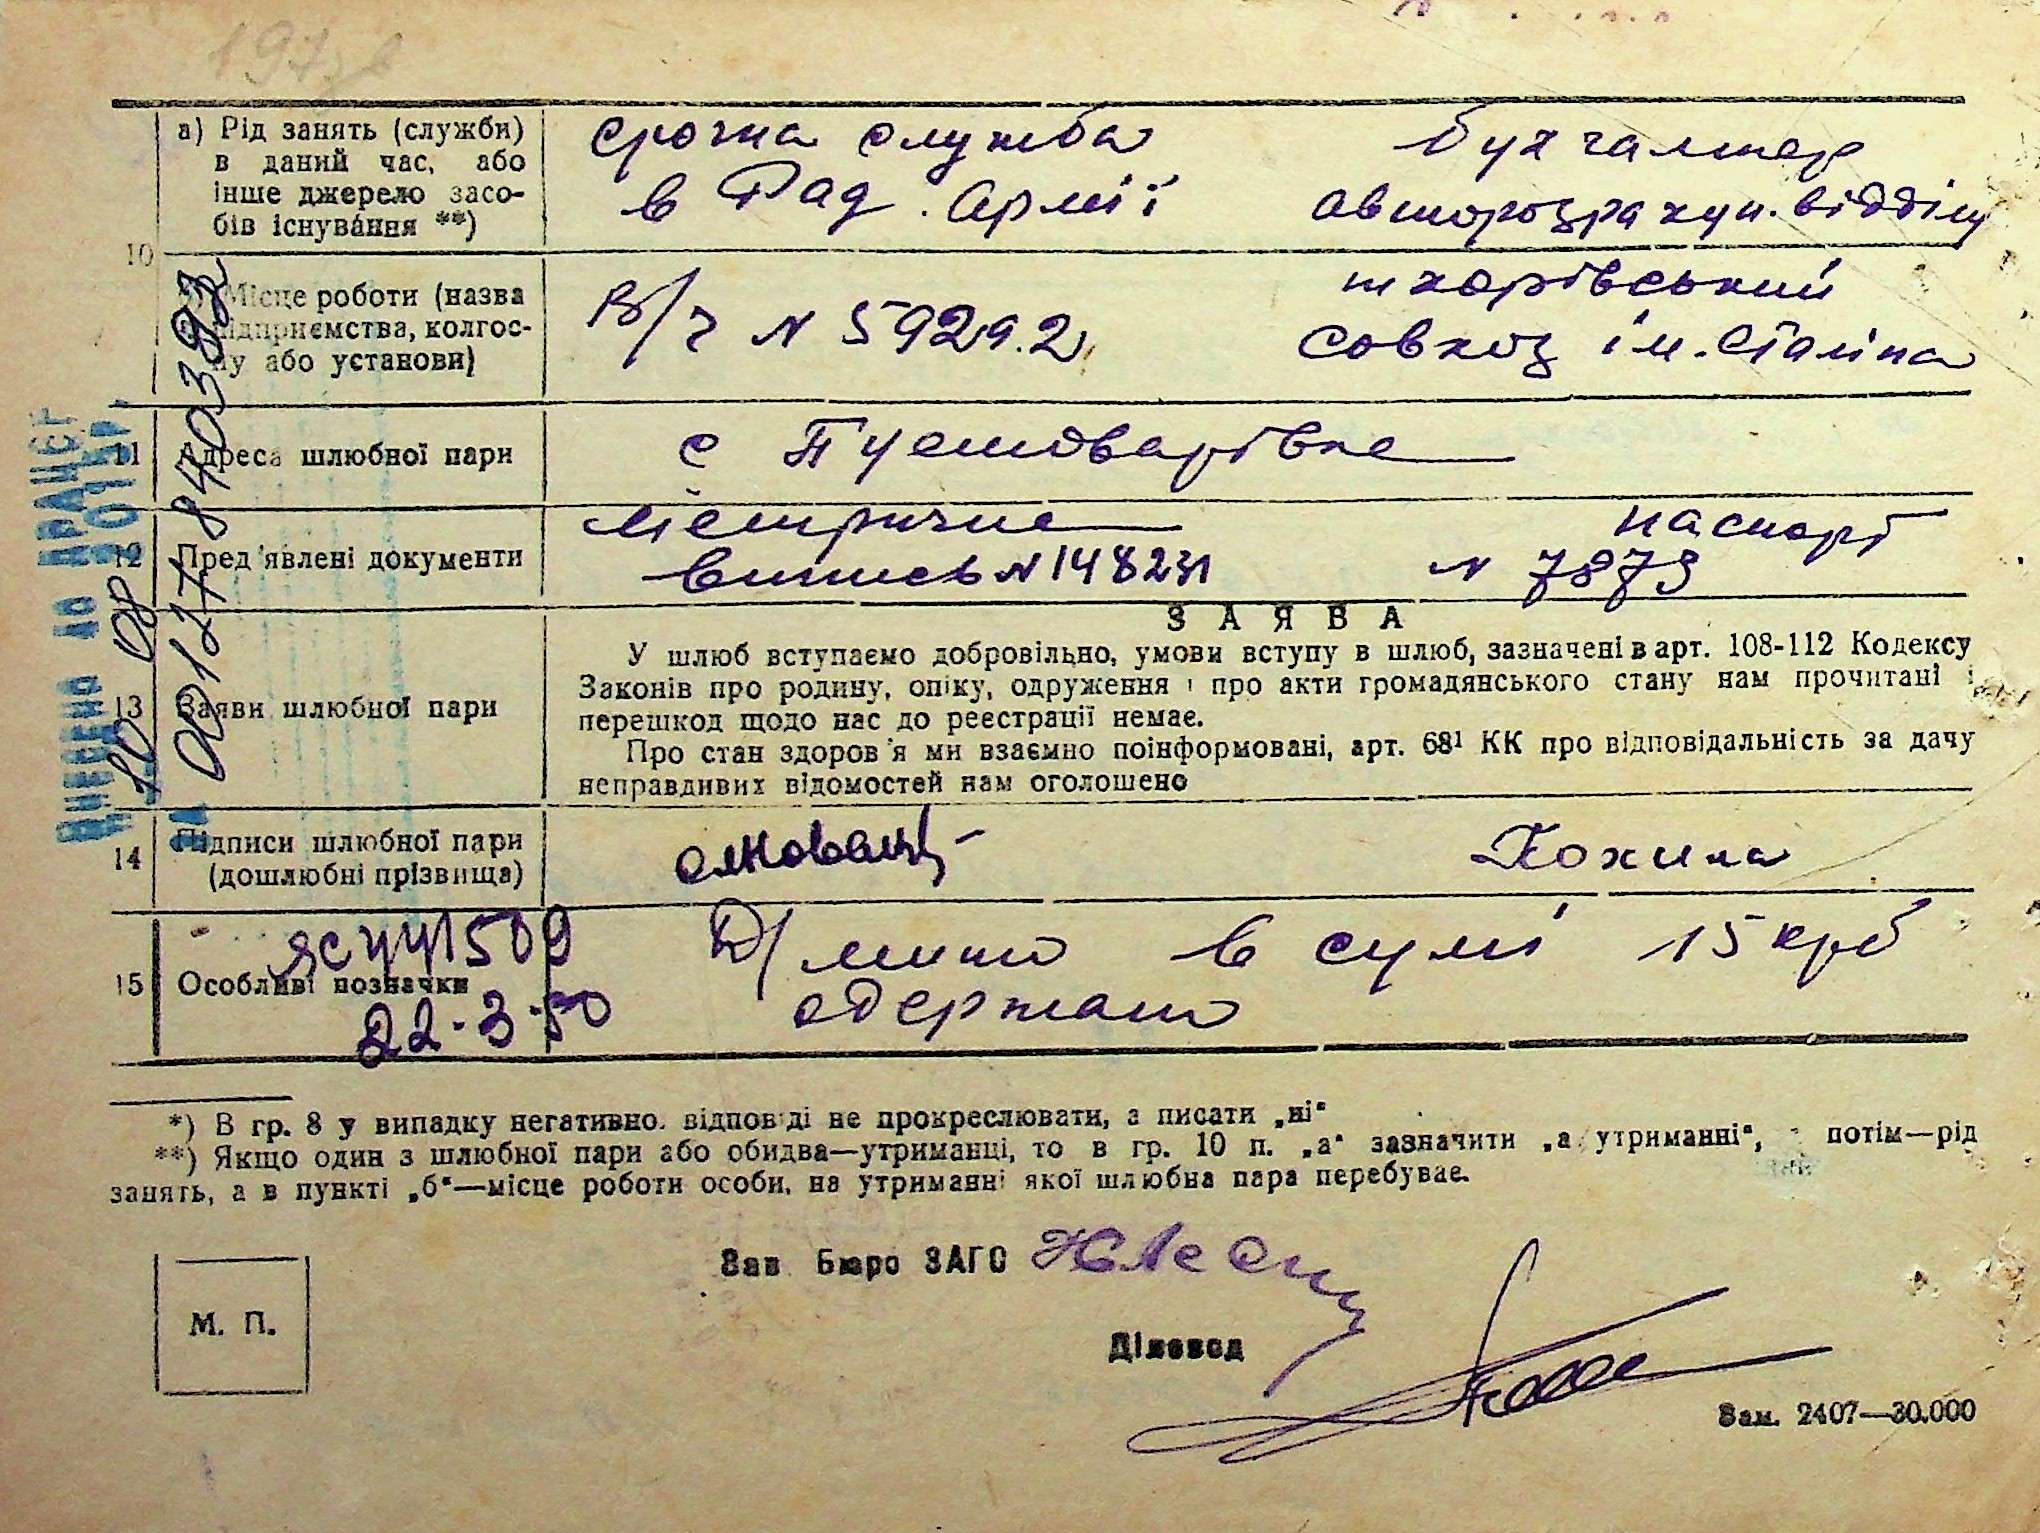 а) Рід занять (служби)
в даний час, або
інше джерело засо-
бів існування **)
срочна служба
в Рад. Армії
бухгалтер
10
Місце роботи (назва
підприємства, колгос-
пу або установи)
В/ч N 59292
совхоз ім. Сталіна
11
Адреса шлюбної пари
с Пустоварівка
12
Пред'явлені документи
Метричне
випись N 148231
паспорт
N 7873
13
Заяви шлюбної пари
ЗАЯВА
У шлюб вступаємо добровільно, умови вступу в шлюб, зазначені в арт. 108-112 Кодексу
Законів про родину, опіку, одруження і про акти громадянського стану нам прочитані і
перешкод щодо нас до реєстрації немає.
Про стан здоров'я ми взаємно поінформовані, арт. 68¹ КК про відповідальність за дачу
неправдивих відомостей нам оголошено
14
Підписи шлюбної пари
(дошлюбні прізвища)
Кохила
15
Особливі позначки
ЯС УЧ 1509
22-3-50
Д/мито в сумі 15 крб
одержано
ВНЕСЕНО ДО ДРАЦСГ
10 08 201
ЗА
00127840393
*) В гр. 8 у випадку негативно. відповіді не прокреслювати, а писати „ні“
**) Якщо один з шлюбної пари або обидва—утриманці, то в гр. 10 п. „а“ зазначити „а утриманні“, потім—рід
занять, а в пункті „б“—місце роботи особи, на утриманні якої шлюбна пара перебуває.
М. П.
Зав Бюро ЗАГС
Діловод
Зам. 2407—30.000